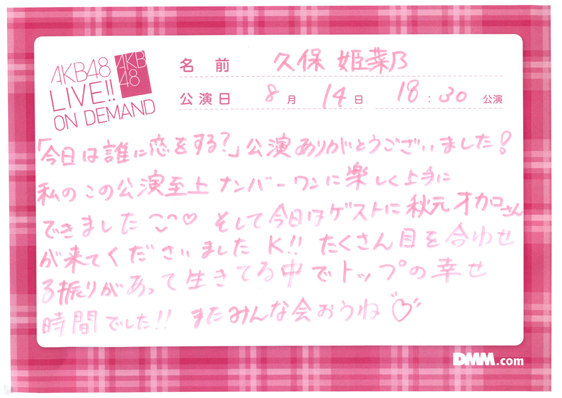 AKB48
LIVE!!
ON DEMAND
AKB
48
名前 久保 姫菜乃
公演日 8月 14日 18:30 公演
「今日は誰に恋をする?」公演ありがとうございました!
私のこの公演至上ナンバーワンに楽しく上手に
できました♡ そして今日はゲストに秋元才加さん
が来てくださいました K!! たくさん目を合わせ
る振りがあって生きてる中でトップの幸せ
時間でした!! またみんな会おうね♡
DMM.com